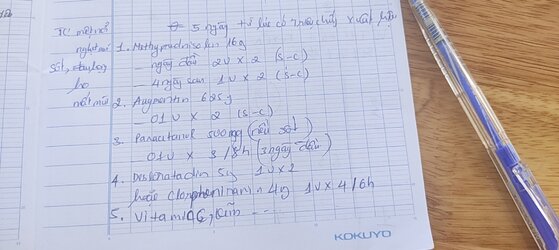 TC mệt mỏi
nghẹt mũi
sốt, đau họng
ho
nhức mũi
5 ngày từ lúc có triệu chứng xuất hiện
1. Methyprednisolon 16g
– ngày đầu 2V x 2 (S-C)
– 4 ngày sau 1V x 2 (S-C)
2. Augmentin 625g
– 01V x 2 (S-C)
3. Paracetamol 500mg (nếu sốt)
01V x 3 /8h (3 ngày đầu)
4. Desloratadin 5g 1V x 2
hoặc Clorpheniramin 4g 1V x 4/6h
5. Vitamin C, kẽm ---
KOKUYO